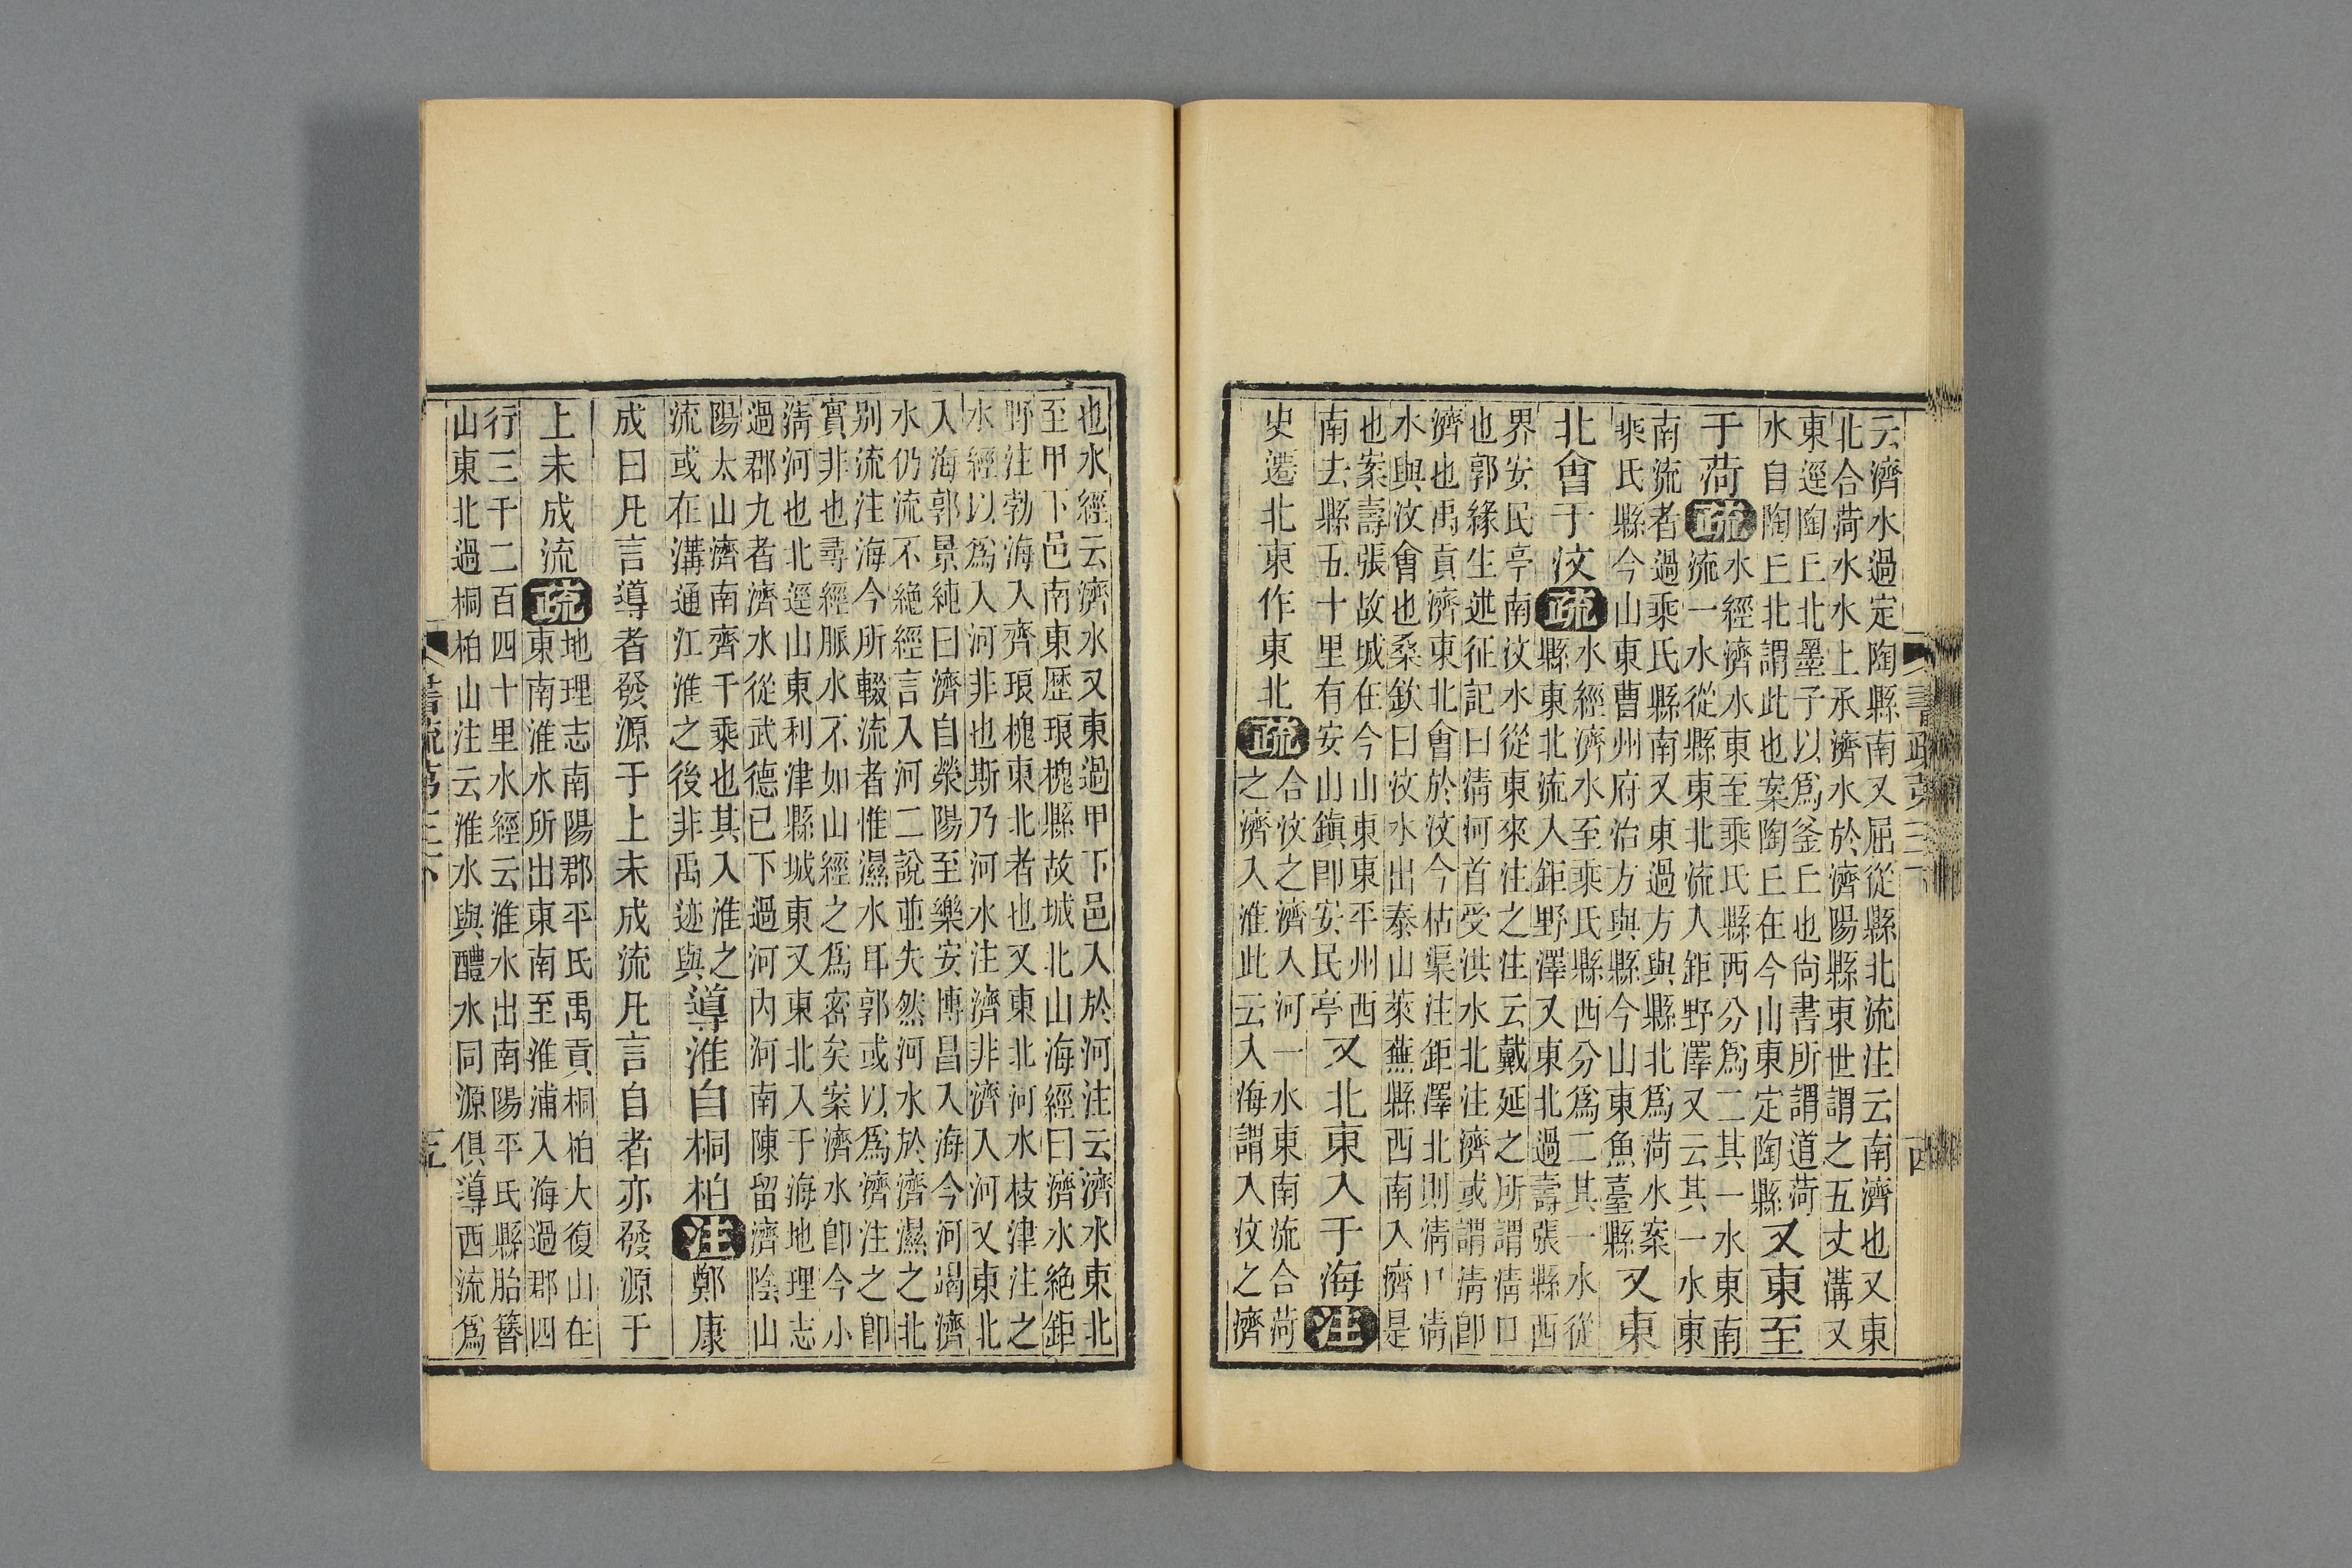 云濟水過定陶縣南又屈從縣北流注云南濟也又東
北合菏水水上承濟水於濟陽縣東世謂之五丈溝又
東逕陶丘北墨子以爲釜丘也尙書所謂道菏
水自陶丘北謂此也案陶丘在今山東定陶縣
又東至
于菏
疏
水經濟水東至乘氏縣西分爲二其一水東南
流一水從縣東北流入鉅野澤又云其一水東
南流者過乘氏縣南又東過方與縣北爲菏水案
乘氏縣今山東曹州府治方與縣今山東魚臺縣
又東
北會于汶
疏
水經濟水至乘氏縣西分爲二其一水從
縣東北流入鉅野澤又東北過壽張縣西
界安民亭南汶水從東來注之注云戴延之所謂淸口
也郭緣生述征記曰淸河首受洪水北注濟或謂淸卽
濟也禹貢濟東北會於汶今枯渠注鉅澤北則淸口淸
水與汶會也桑欽曰汶水出泰山萊蕪縣西南入濟是
也案壽張故城在今山東東平州西
南去縣五十里有安山鎭卽安民亭
又北東入于海
注
史遷北東作東北
疏
合汶之濟入河一水東南流合菏
之濟入淮此云入海謂入汶之濟
也水經云濟水又東過甲下邑入於河注云濟水東北
至甲下邑南東歷琅槐縣故城北山海經曰濟水絶鉅
野注勃海入齊琅槐東北者也又東北河水枝津注之
水經以爲入河非也斯乃河水注濟非濟入河又東北
入海郭景純曰濟自滎陽至樂安博昌入海今河竭濟
水仍流不絶經言入河二說並失然河水於濟濕之北
别流注海今所輟流者惟濕水耳郭或以爲濟注之卽
實非也尋經脈水不如山經之爲密矣案濟水卽今小
淸河也北逕山東利津縣城東又東北入于海地理志
過郡九者濟水從武德已下過河內河南陳留濟陰山
陽太山濟南齊千乘也其入淮之
流或在溝通江淮之後非禹迹與
導淮自桐柏
注
鄭康
成曰凡言導者發源于上未成流凡言自者亦發源于
上未成流
疏
地理志南陽郡平氏禹貢桐柏大復山在
東南淮水所出東南至淮浦入海過郡四
行三千二百四十里水經云淮水出南陽平氏縣胎簪
山東北過桐柏山注云淮水與醴水同源俱導西流爲